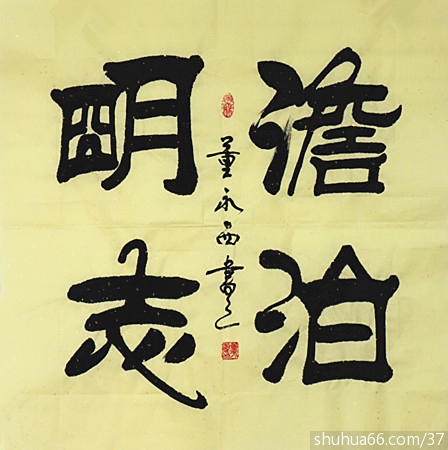 澹泊
明志
董永西書之
shuhua66.com/37